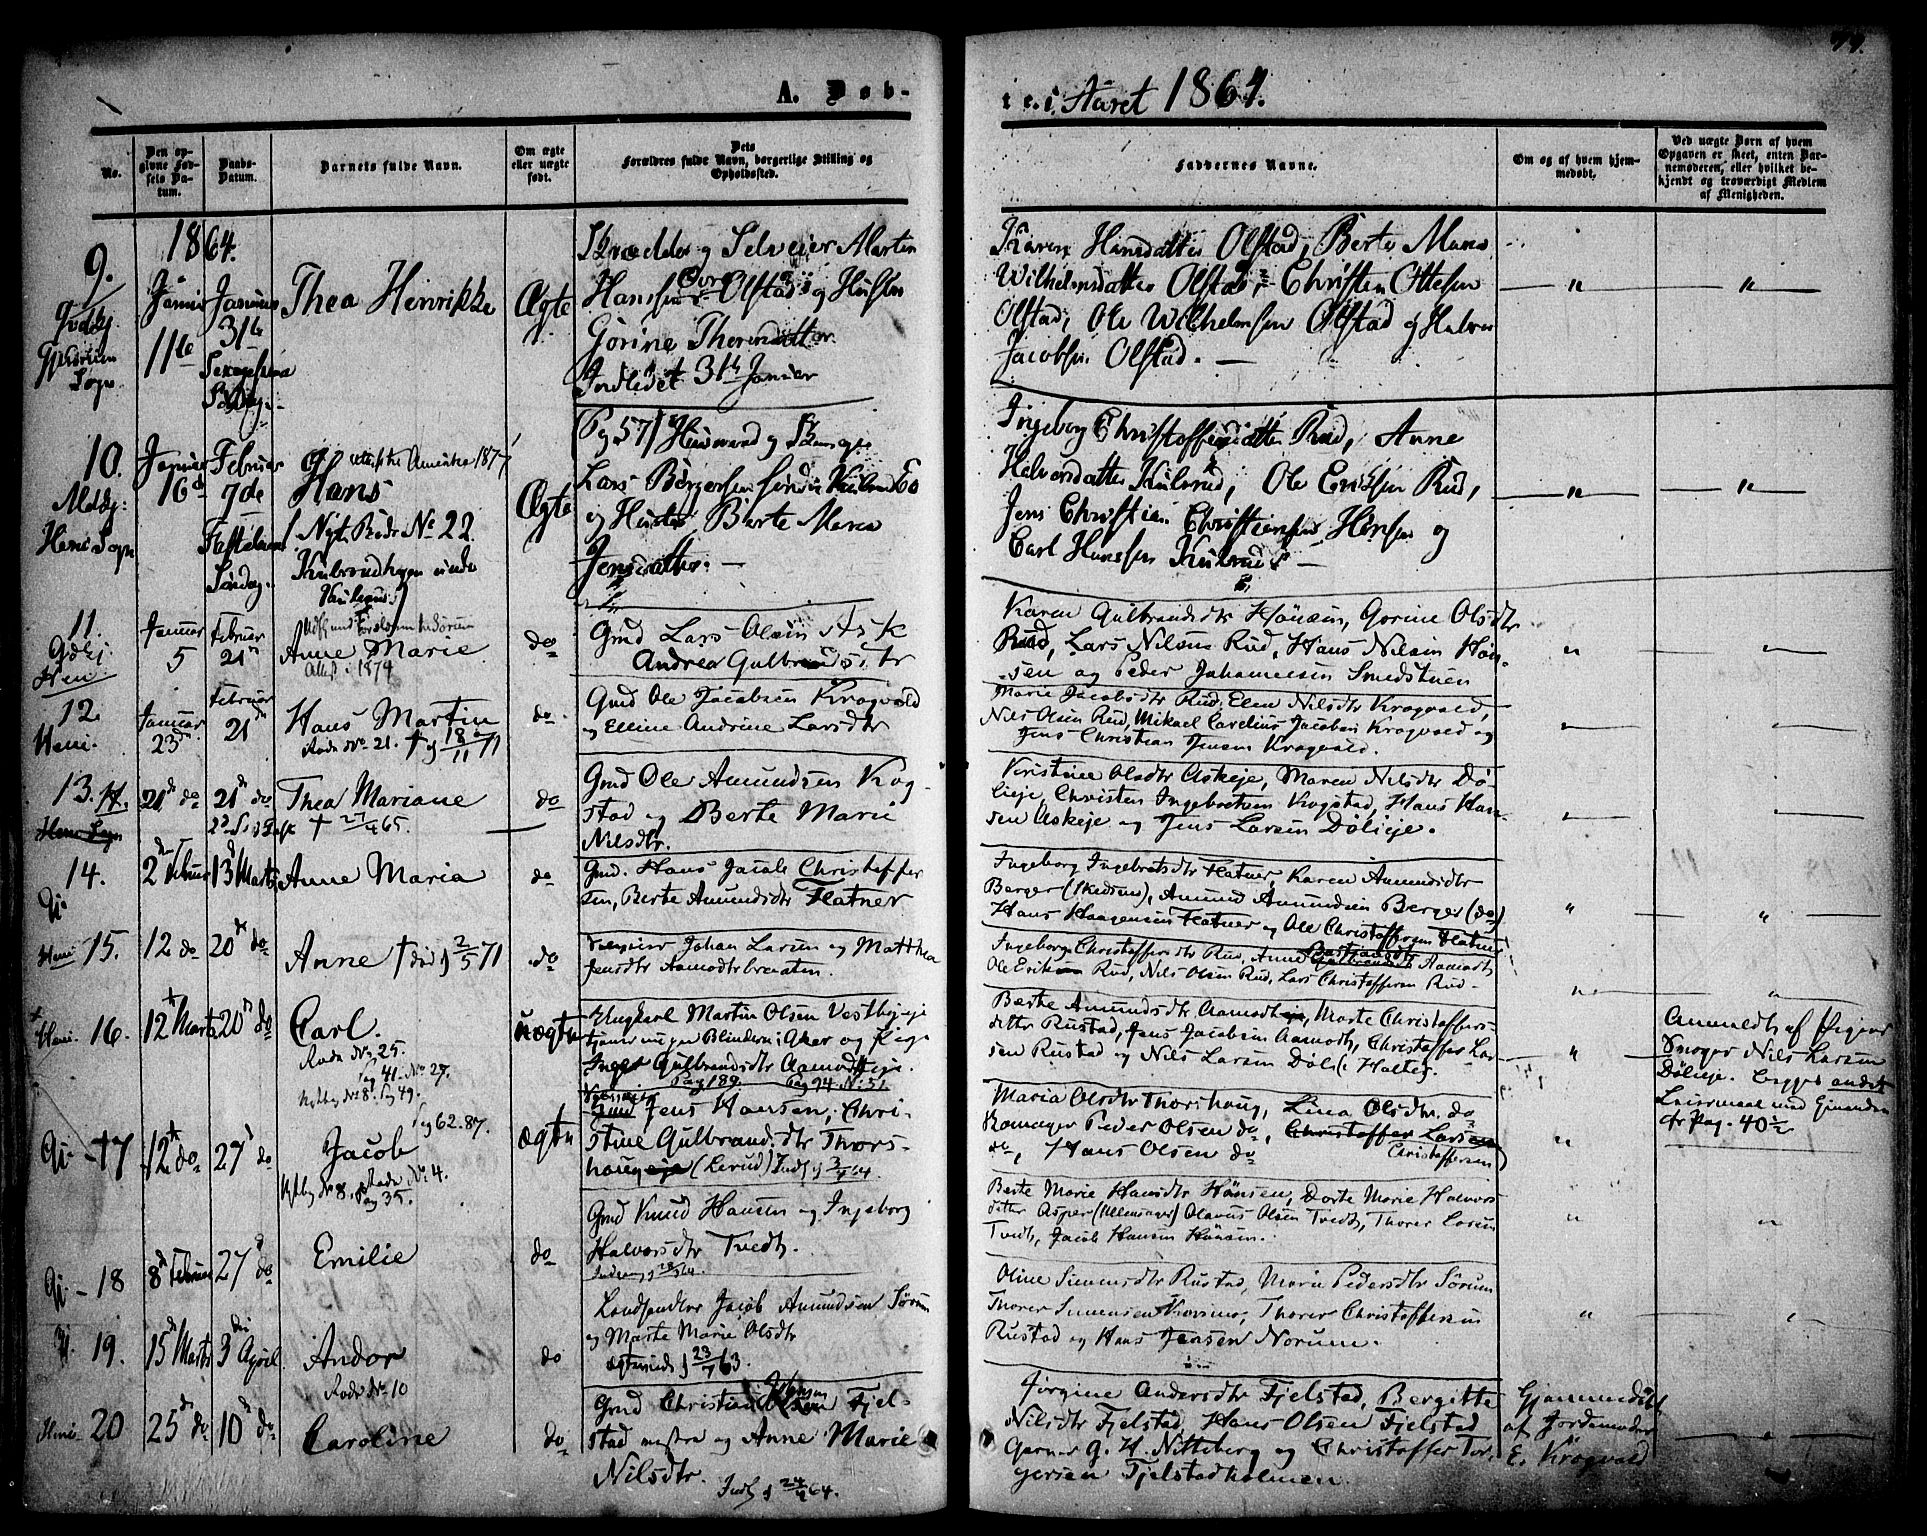 A. Døb-
te. i Aaret 1864.
No.
Den op-
givne Fød-
sels Da-
tum.
Daabs-
Datum.
Barnets fulde Navn.
Om ægte
eller uægte
født.
Dets
Forældres fulde Navn, borgerlige Stilling og
Opholdssted.
Faddernes Navne.
Om og af hvem hjem-
medøbt.
Ved uægte Børn af hvem
Opgaven er skeet, enten Bar-
nemoderen, eller hvilket be-
kjendt og troværdigt Medlem
af Menigheden.
1864.
9.
Gjerdrum
Sogn
Januar
11te
Januar
31te
Sexagesima
Søndag
Thea Henrikke
Ægte
og Selveier Martin
Hanssen Olstad og Hustru
Gorine
Indledet 31te Januar
Karen Hansdatter Olstad, Berte Maria
Wilhelmsdatter Olstad, Christen Ottesen
Olstad, Ole Wilhelmsen Olstad og Halvor
Jacobsen Olstad.
10.
Heni Sogn
Januar
16de
Februar
7de
Fastelavns
Søndag
Amerika 1877
Hans
Nyt Rode No 22.
Ægte
(Pag 57) Huusmand og
Lars Børgersen
og Hustru Berte Maria
Jensdatter.
Ingeborg Christoffersdatter Rud, Anne
Halvorsdatter Kulsrud, Ole Ericksen Rud,
Jens Christian Christiansen Hønsen og
Carl Hanssen Kulsrud
11.
Heni
Januar
5
Februar
21
Anne Marie
Attest 1879
do
Gmd Lars Olsen Ask
Andrea Gulbrandsdtr
Karen Gulbrandsdtr Hønsen, Gorine Olsdtr
Rud, Lars Nilsen Rud, Hans Nilsen Høn-
sen og Peder Johannesen Smedstuen
12
Heni.
Januar
23d
Februar
21
Hans Martin
Rode No 21. † 18/11 71
do.
Gmd Ole Jacobsen Krogvold
og Elline Andrine Larsdtr
Marie Jacobsdtr Rud, Elen Nilsdtr Krogvold,
Nils Olsen Rud, Mikael Carelius Jacobsen Krogvold og
Jens Christian Jensen Krogvold.
13.
Heni Sogn
21d do
21d do
2d S. i Fast
Thea Mariane
† 27/4 65.
do
Gmd Ole Amundsen Kog-
stad og Berte Marie
Nilsdtr.
Kristine Olsdtr Askeje, Maren Nilsdtr Dø-
lieje, Christen Ingebretsen Krogstad, Hans Han-
sen Askeje og Jens Larsen Dølieje.
14.
Gj.
2d Februar
13d Marts
Anne Maria
do
Gmd. Hans Jacob Christoffer
sen, Berte Amundsdtr Flatner
Ingeborg Ingebretsdtr Flatner, Karen Amundsdtr
Berger (Skedsmo), Amund Amundsen Berger (do)
Hans Haagensen Flatner og Ole Christoffersen Flatner
Heni 15.
12 do
20d do
Anne † død 2/5 71
do
Johan Larsen og Matthea
Jensdtr Aamodtbraaten.
Ingeborg Christoffersdtr Rud, Anne Gulbrandsdtr Aamodt,
Ole Eriksen Rud, Nils Olsen Rud, Lars Christoffersen Rud.
Heni 16.
12t Marts
20d do
Carl.
Rode No. 25.
Pag 41. No 27.
No 8. Pag 49.
uægte
Ungkarl Martin Olsen Vestbyeje
tjener nu paa Blindern i Aker og Pige
Inger Gulbrandsdtr Aamodteje.
Pag 189. Pag 94 No 51
Berte Amundsdtr Aamodt, Marte Christoffers-
datter Rustad, Jens Jacobsen Aamodt, Christoffer Lar-
sen Rustad og Nils Larsen Døli
Anmeldt af Pigens
Svoger Nils Larsen
Dølieje. begges andet
Leiermaal
Pag. 40½
Gj - 17
12t do
27d do
Pag 62. 87.
Jacob
No 8. Rode No. 4.
Pag 35.
ægte
Gmd Jens Hansen, Chri-
stine Gulbrandsdtr Thors-
haug (Lerud)
Maria Olsdtr Thorshaug, Lina Olsdtr do
Peder Olsen do, Christoffer Larsen
do, Hans Olsen do
Christoffersen
Gj - 18
8d Februar
27d do
Emilie
do
Gmd Knud Hansen og Ingeborg
Halvorsdtr Tvedt.
Berte Marie Hansdtr Hønsen, Dorte Marie Halvors
datter Asper (Ullensager) Olavus Olsen Tvedt, Thorer Larsen
Tvedt, Jacob Hansen Hønsen.
19.
15d Marts
3die April
Andor
Rode No 10
do
Landhandler Jacob Amundsen Sørum
og Marte Marie Olsdtr
ægteviede 23/7 63.
Oline Simensdtr Rustad, Maria Pedersdtr Sørum
Thorer Simensen, Thorer Christoffersen
Rustad og Hans Jensen Norum.
Heni - 20
25d do
10d do
Caroline
do
Gmd Christian Hansen Fjel-
stad og Anne Marie
Nilsdtr.
Indl. 24/4 64.
Jørgine Andersdtr Fjelstad, Bergitte
Nilsdtr Fjelstad, Hans Olsen Fjelstad
Garver G. H. Nitteberg og Christoffer Tor-
gersen Fjelstadholmen.
Hjemmedøbt
af Jordemoder
E. Krogvold